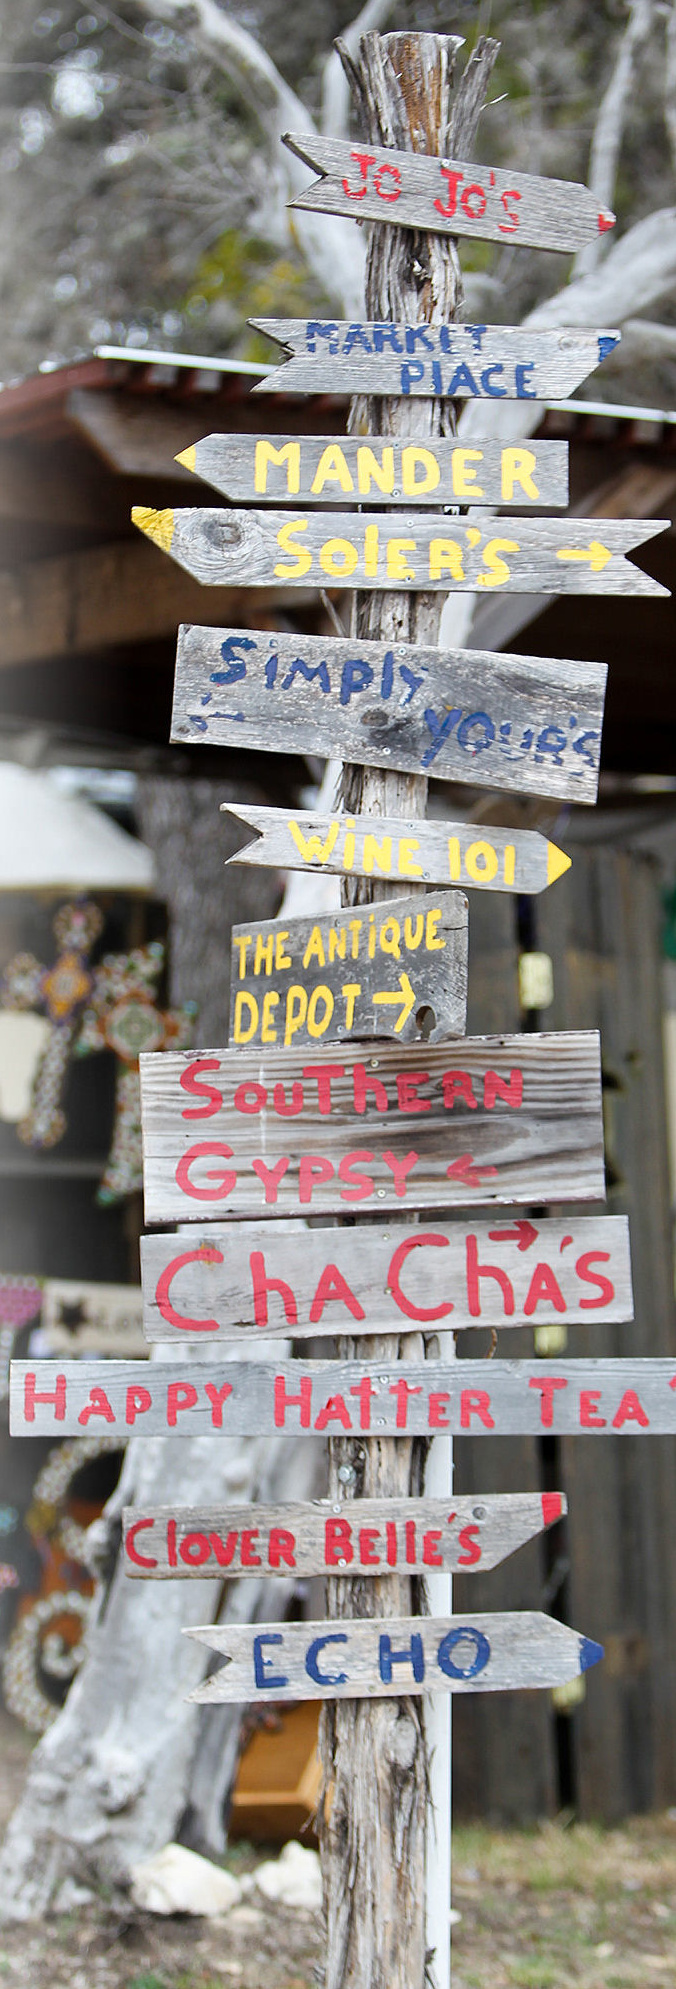 JO JO's
MARKET
PlACE
MANDER
SolER'S →
Simply
← YOUR'S
WiNE 101
THE ANTiQUE
DEPOT →
SouThERN
GYPSY ←
ChA ChA'S →
HAPPY HATTER TEA
ClOVER BEllE'S
ECHO